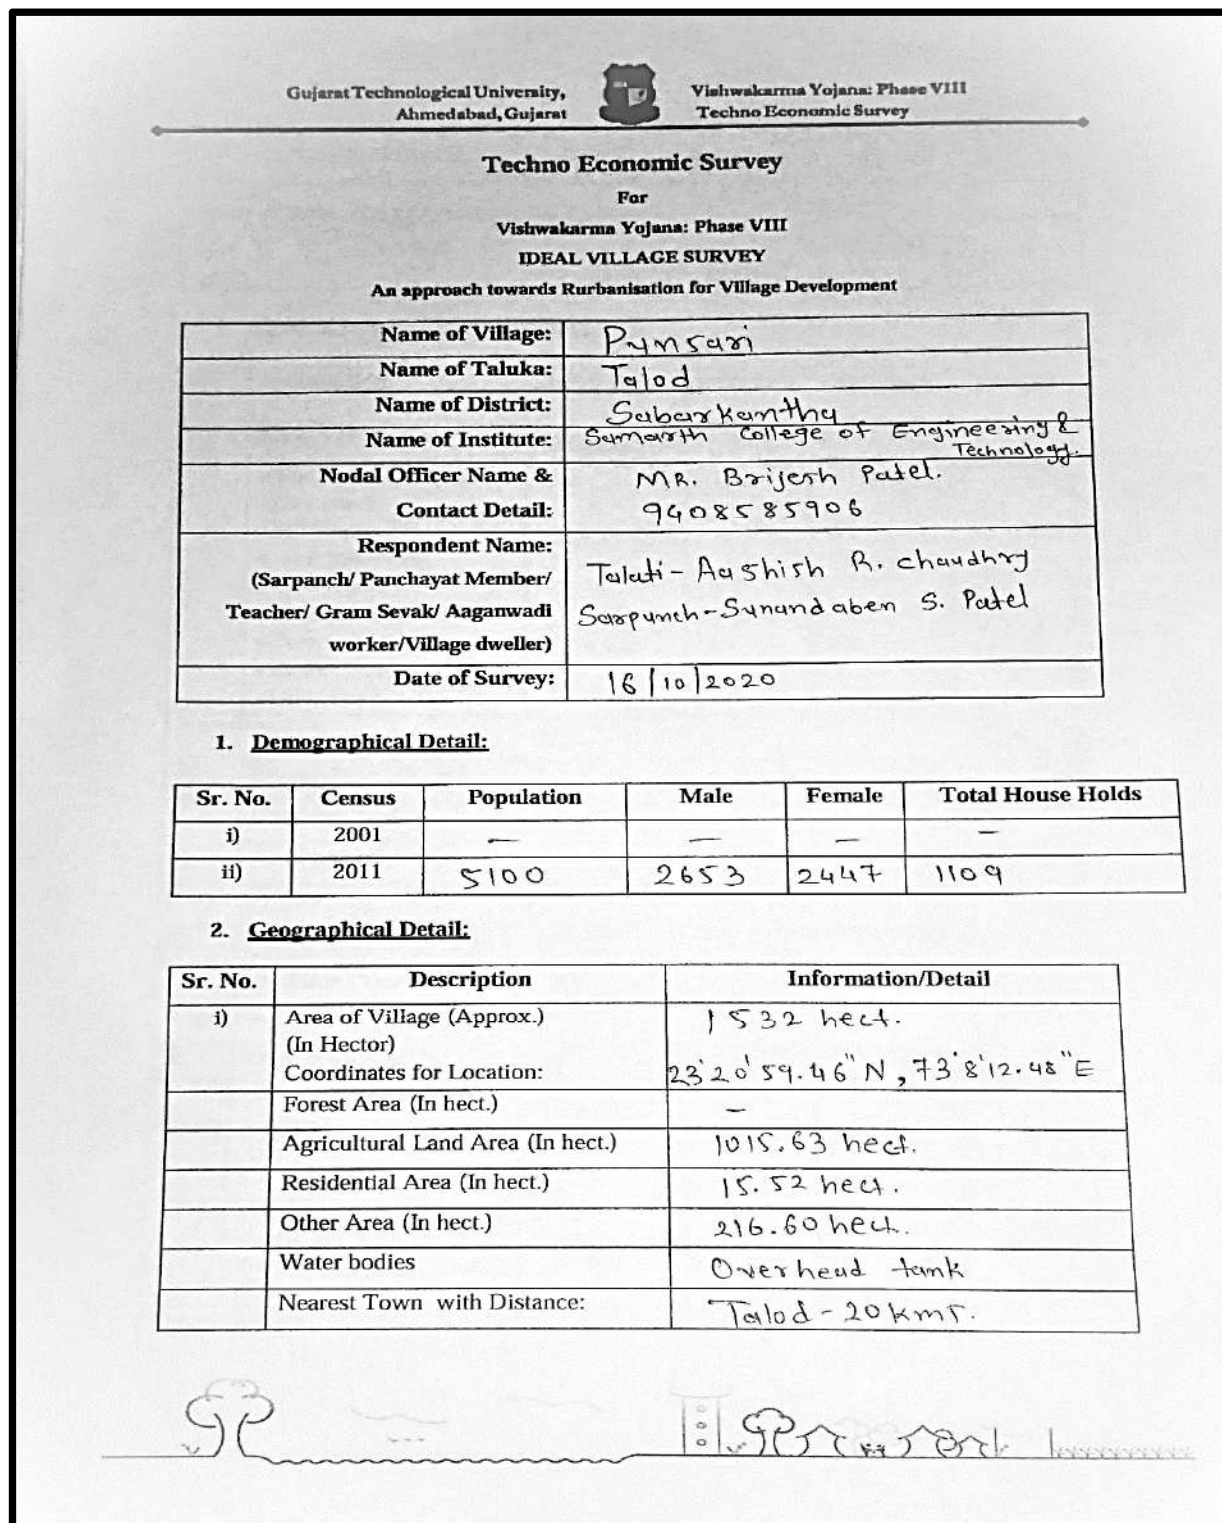 Gujarat Technological University,
Ahmedabad, Gujarat
Vishwakarma Yojana: Phase VIII
Techno Economic Survey
Techno Economic Survey
For
Vishwakarma Yojana: Phase VIII
IDEAL VILLAGE SURVEY
An approach towards Rurbanisation for Village Development
Name of Village: Punsari
Name of Taluka: Talod
Name of District: Sabarkantha
Name of Institute: Samarth College of Engineering &
Technology.
Nodal Officer Name & MR. Brijesh Patel.
Contact Detail: 9408585906
Respondent Name:
(Sarpanch/ Panchayat Member/ Talati - Aashish R. chaudhry
Teacher/ Gram Sevak/ Aaganwadi Sarpanch - Sunandaben S. Patel
worker/Village dweller)
Date of Survey: 16/10/2020
1. Demographical Detail:
Sr. No. Census Population Male Female Total House Holds
i) 2001 — — — —
ii) 2011 5100 2653 2447 1109
2. Geographical Detail:
Sr. No. Description Information/Detail
i) Area of Village (Approx.) 1532 hect.
(In Hector)
Coordinates for Location: 23°20'59.46"N, 73°8'12.48"E
Forest Area (In hect.) —
Agricultural Land Area (In hect.) 1015.63 hect.
Residential Area (In hect.) 15.52 hect.
Other Area (In hect.) 216.60 hect.
Water bodies Overhead tank
Nearest Town with Distance: Talod - 20 kms.